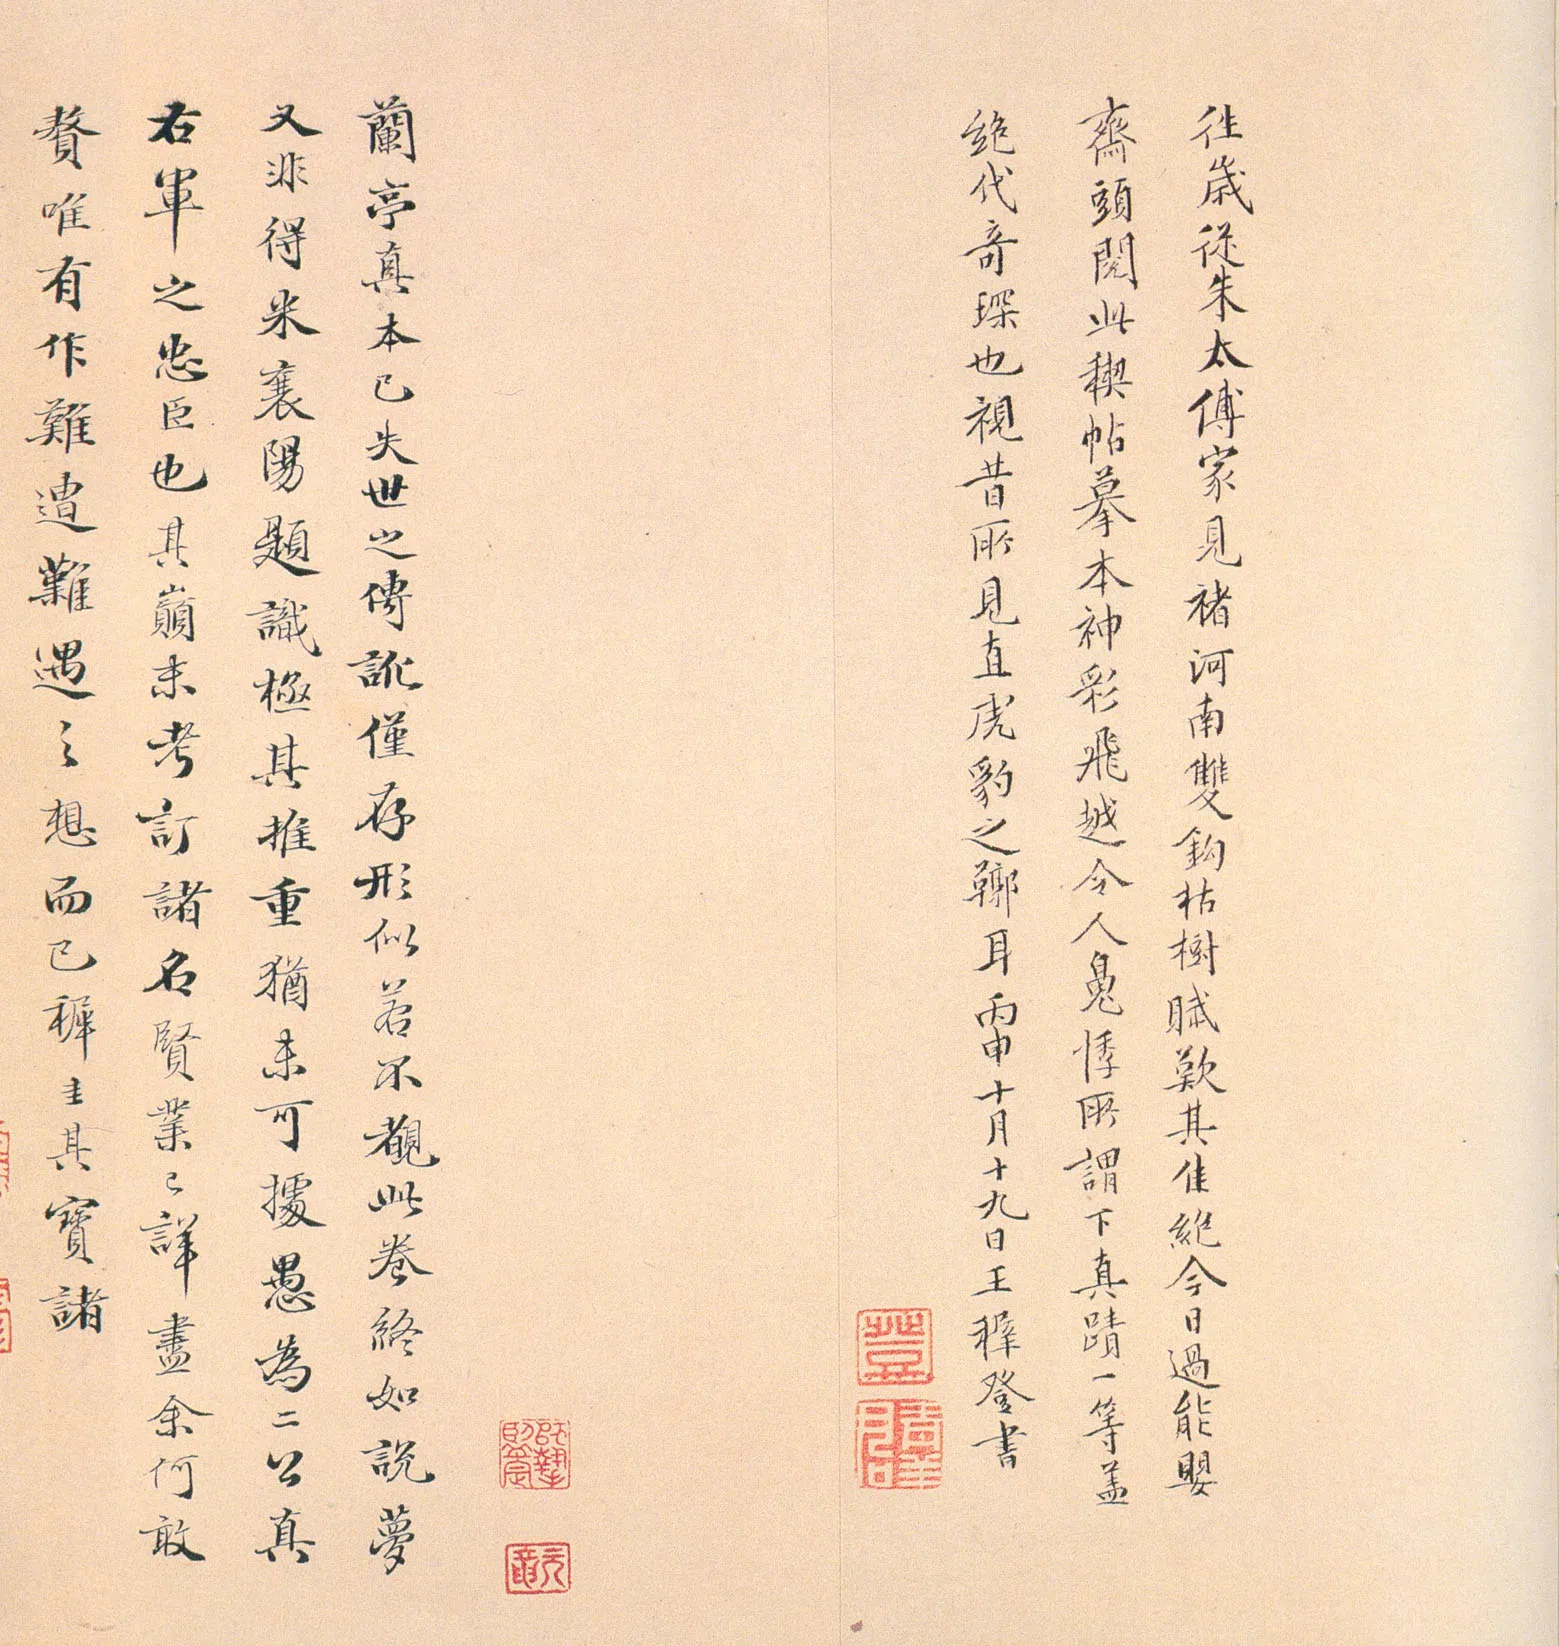 往歲從朱太傅家見褚河南雙鈎枯樹賦歎其佳絕今日過能嬰
齋頭閱此稧帖摹本神彩飛越令人鬼悸所謂下真蹟一等盖
絕代奇琛也視昔所見直虎豹之鞹耳丙申十月十九日王穉登書
蘭亭真本已失世之傳訛僅存形似若不覩此卷終如說夢
又非得米襄陽題識極其推重猶未可據愚為二公真
右軍之忠臣也其巔末考訂諸名賢業已詳盡余何敢
贅唯有作難遭難遇之想而已穉主其寶諸